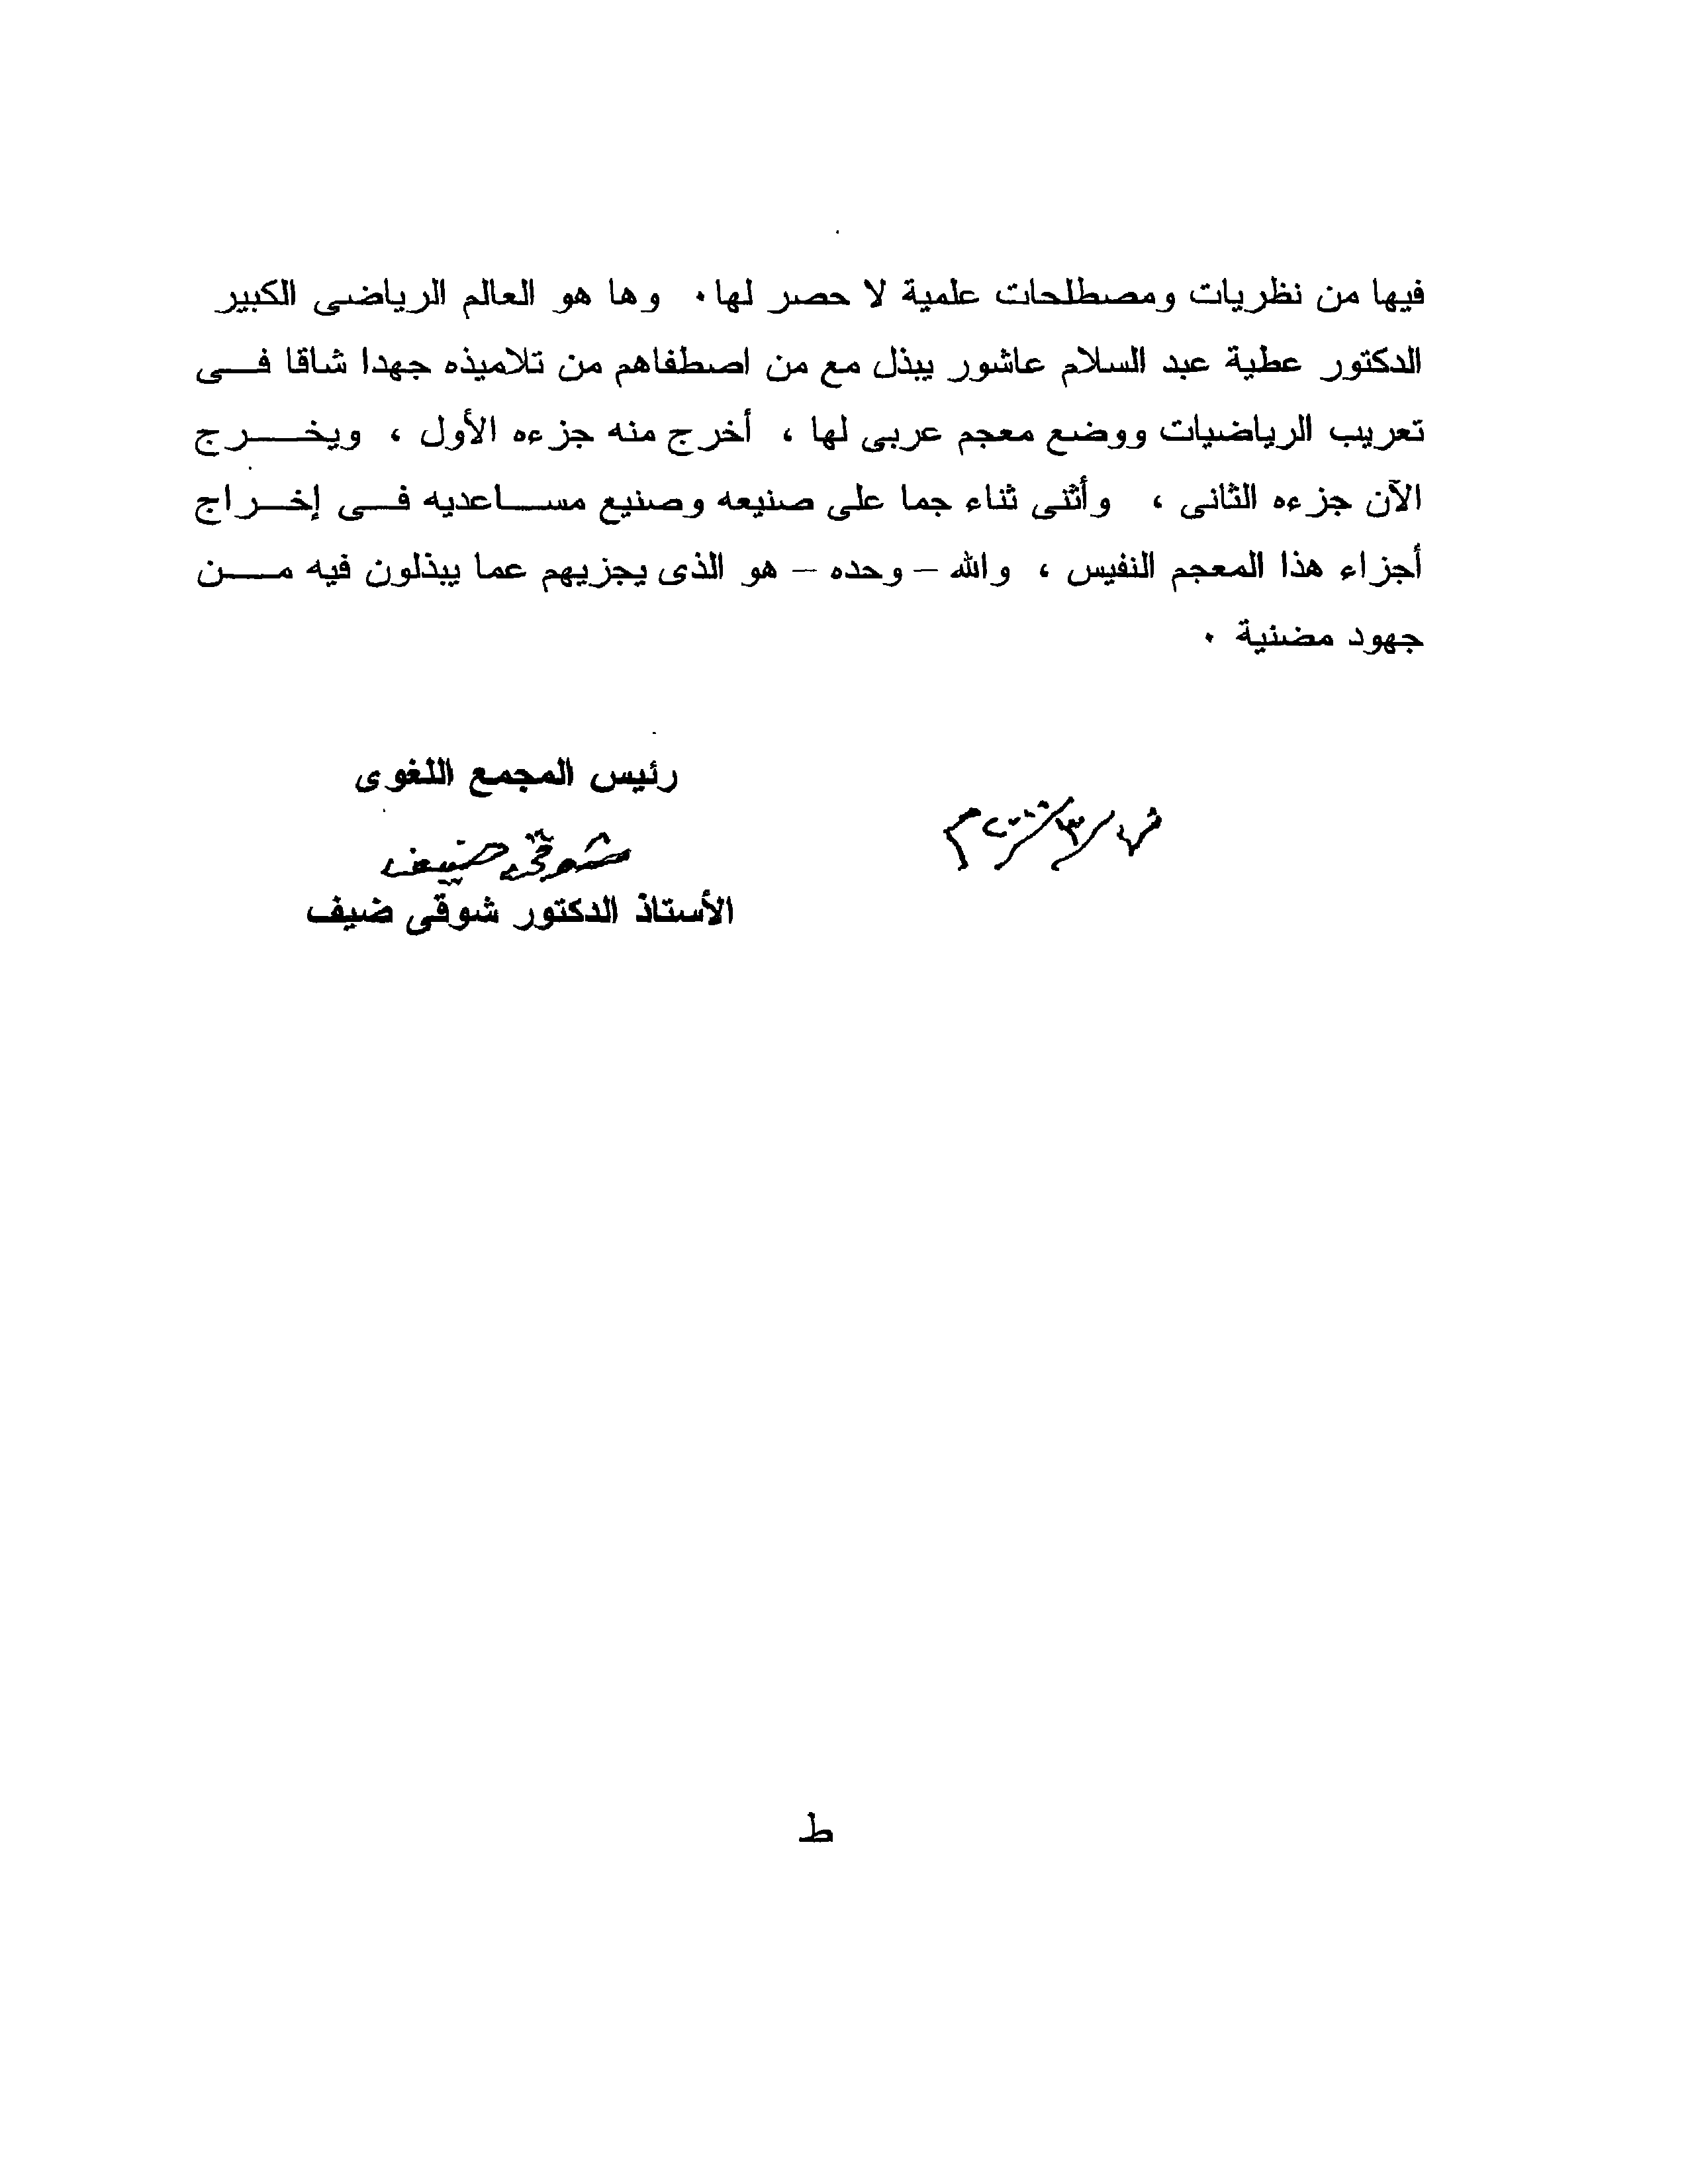 فيها من نظريات ومصطلحات علمية لا حصر لها٠ وها هو العالم الرياضى الكبير
الدكتور عطية عبد السلام عاشور يبذل مع من اصطفاهم من تلاميذه جهدا شاقا فى
تعريب الرياضيات ووضع معجم عربى لها ، أخرج منه جزءه الأول ، ويخرج
الآن جزءه الثانى ، وأثنى ثناء جما على صنيعه وصنيع مساعديه فى إخراج
أجزاء هذا المعجم النفيس ، والله – وحده – هو الذى يجزيهم عما يبذلون فيه من
جهود مضنية ٠
رئيس المجمع اللغوى
شوقى ضيف
الأستاذ الدكتور شوقى ضيف
ط